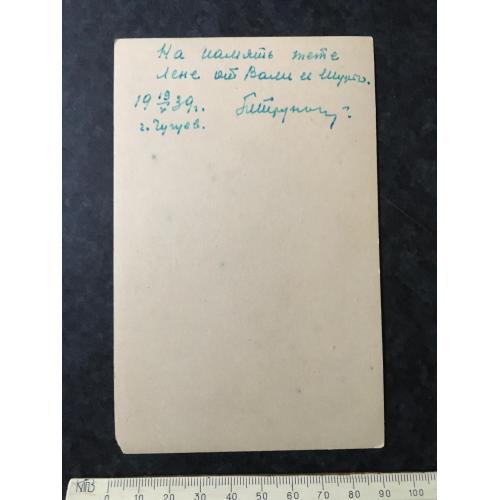 На память тете
Лене от Вали и Шуры.
19 19/X 39 г.
г. Чугуев.
КПВ 10 20 30 40 50 60 70 80 90 100